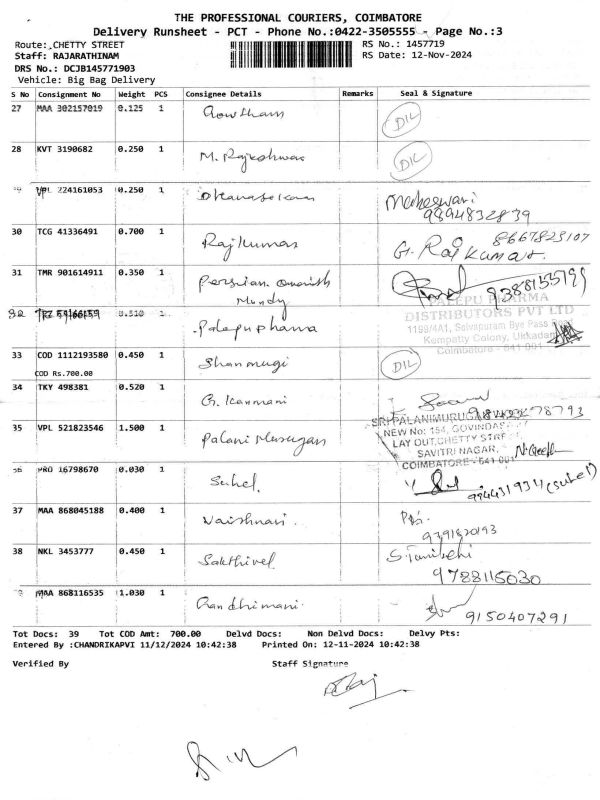 THE PROFESSIONAL COURIERS, COIMBATORE
Delivery Runsheet - PCT - Phone No.:0422-3505555 - Page No.:3
Route: CHETTY STREET
RS No.: 1457719
Staff: RAJARATHINAM
RS Date: 12-Nov-2024
DRS No.: DCJB145771903
Vehicle: Big Bag Delivery
S No Consignment No Weight PCS Consignee Details Remarks Seal & Signature
27 MAA 302157019 0.125 1 Gowtham DIL
28 KVT 3190682 0.250 1 M. Rajeshwar DIL
VPL 224161053 0.250 1 Dhanasekaran Maheswari
9894832839
30 TCG 41336491 0.700 1 Raj Kumar G. Raj Kumar 8667823107
31 TMR 901614911 0.350 1 Persian
Mundy
9388155199
32 TRZ 59166159 0.510 1 Palepu pharma
PALEPU PHARMA
DISTRIBUTORS PVT LTD
1199/4A1, Selvapuram Bye Pass Road
Kempatty Colony, Ukkadam
Coimbatore - 641 001
33 COD 1112193580 0.450 1 Shanmugi DIL
COD Rs.700.00
34 TKY 498381 0.520 1 G. Kanmani
35 VPL 521823546 1.500 1 Palani Murugan
SRI PALANIMURUGA
NEW No: 154, GOVINDAS
LAY OUT, CHETTY STREET
SAVITRI NAGAR,
COIMBATORE - 641 001
36 PRO 16798670 0.030 1 Suhel. (Suhel)
37 MAA 868045188 0.400 1 Vaishnavi.
9391820193
38 NKL 3453777 0.450 1 Sakthivel
9788115030
MAA 868116535 1.030 1 Chandhimani 9150407291
Tot Docs: 39 Tot COD Amt: 700.00 Delvd Docs: Non Delvd Docs: Delvy Pts:
Entered By :CHANDRIKAPVI 11/12/2024 10:42:38 Printed On: 12-11-2024 10:42:38
Verified By Staff Signature